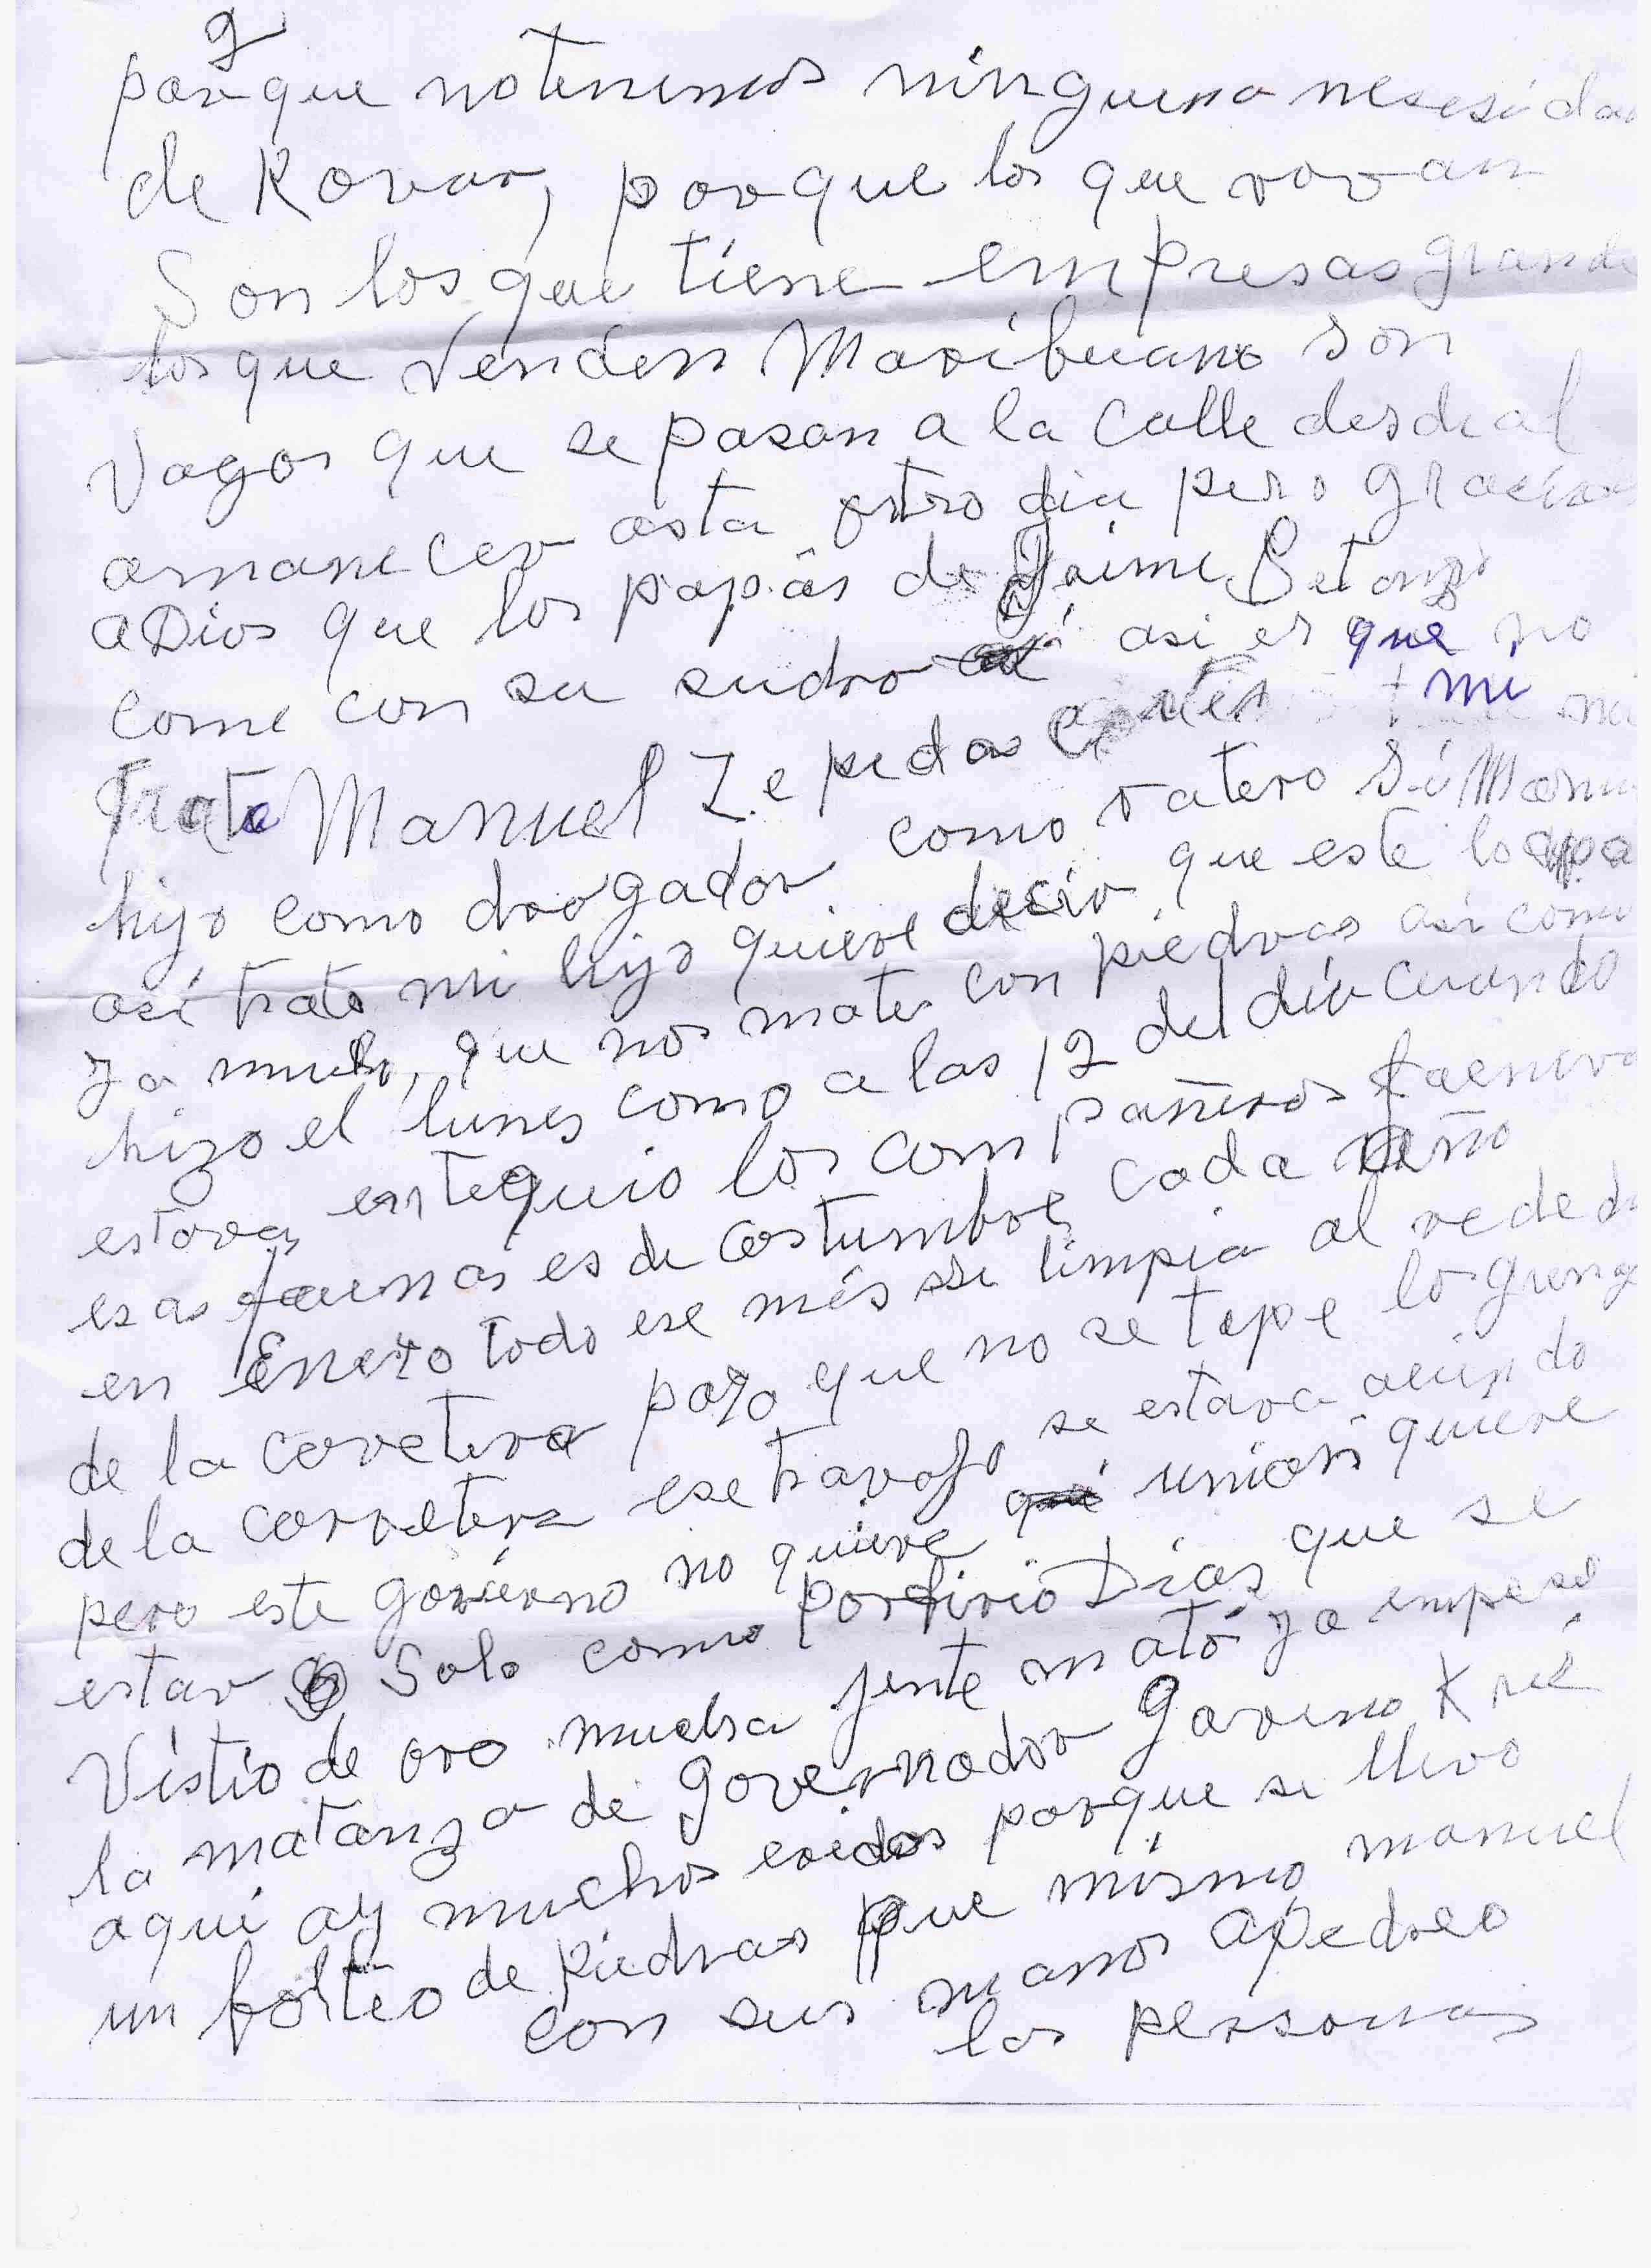 2
porque notenemos ninguna nesesidad
de Rovar, porque los que rovan
Son los que tiene empresas grande
los que venden Maribuana son
Vagos que se pasan a la calle desde al
amanecer asta otro dia pero gracias
a Dios que los papás de Jaime Betanzo
come con su sudro asi es que no
mi
trate Manuel Zepedas
hijo como drogador como ratero si Manu
así trato mi hijo quiere decir que este lo apa
ya mucho, que nos mate con piedras así como
hizo el lunes como a las 12 del día cuando
estavan en tequio los compañeros
esas faenas es de costumbre cada año
en Enero todo ese més se limpia al rededo
de la carretera para que no se tape
de la carretera ese travajo se estava aciendo
pero este govierno no quiere unión quiere
estar Solo como porfirio Días que se
Vistio de oro mucha jente mató ya empesó
la matanza de governador Gavino Kué
aquí ay muchos eridos porque se llevo
un folteo de piedras que mísmo manuel
con sus manos apedreo
las personas